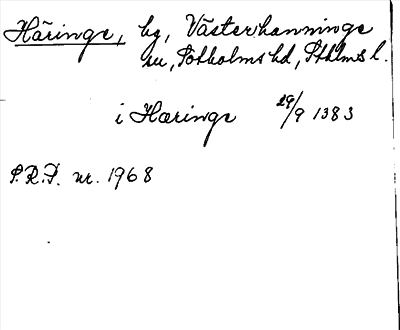 Häringe, hg, Västerhanninge
sn, Sotholms hd, Sthlms l.
i Haringe 29/9 1383
S.R.P. nr. 1968